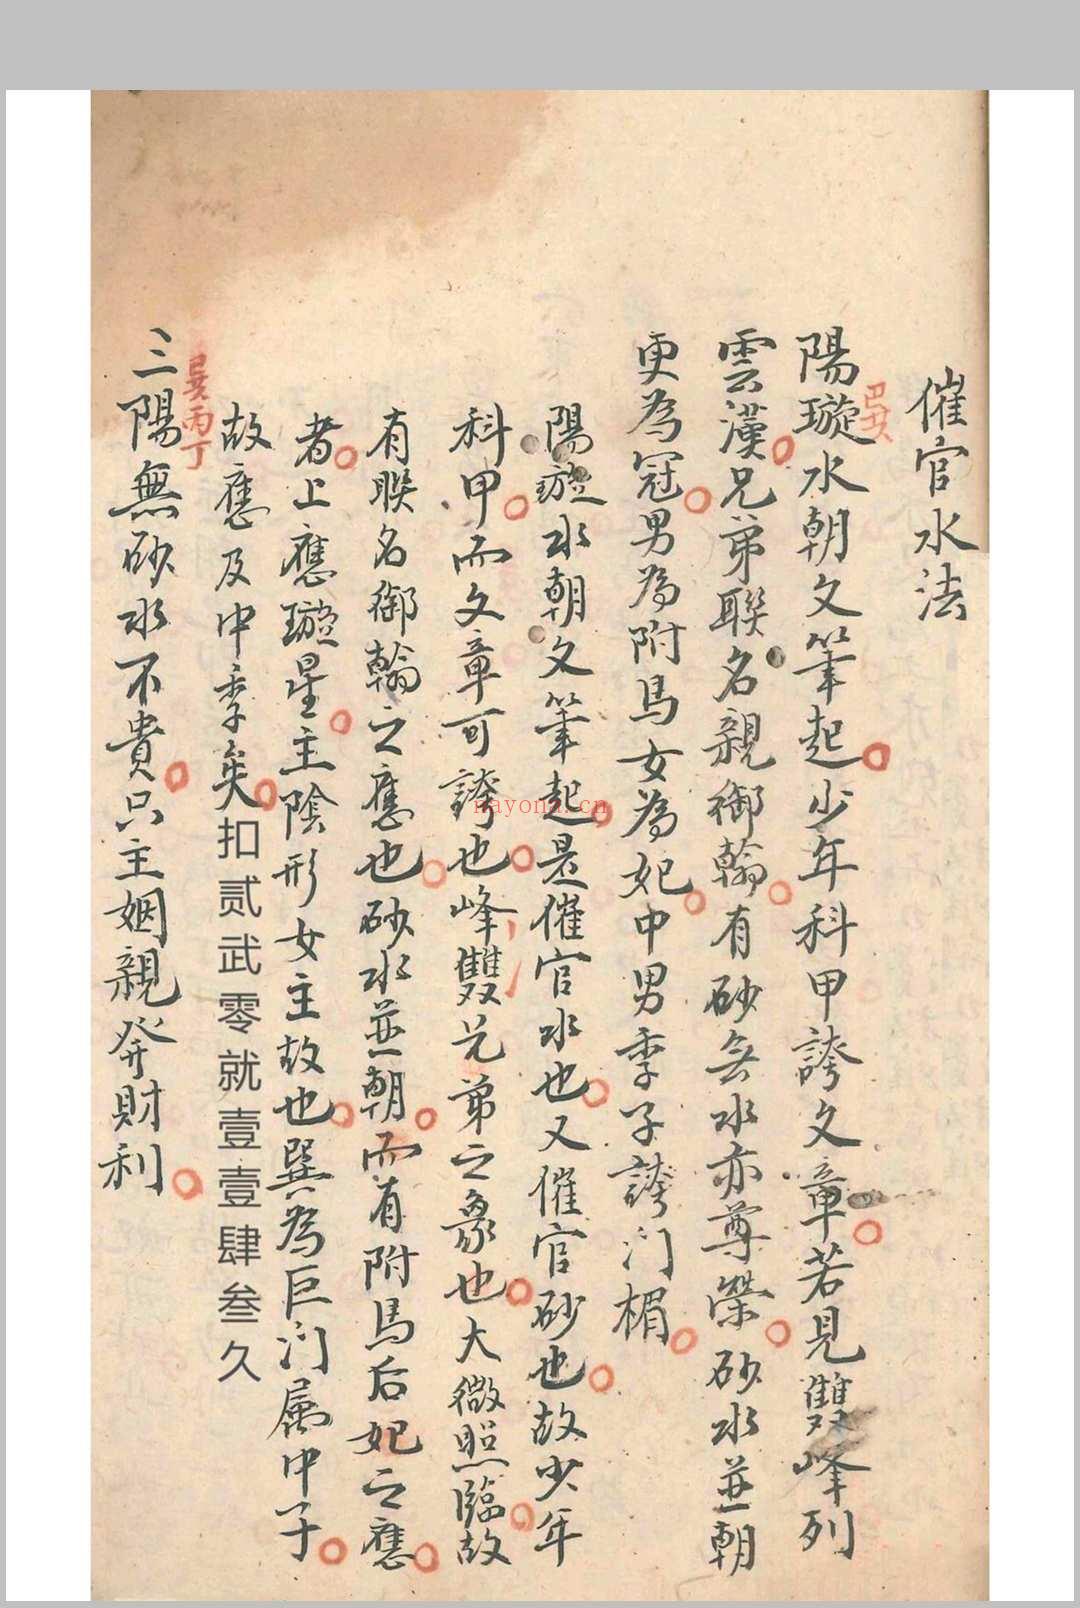 催官水法
巳巽
陽璇水朝文筆起少年科甲誇文章若見雙峰列
雲漢兄弟聯名親御翰有砂無水亦尊榮砂水並朝
更為冠男為附馬女為妃中男季子誇门楣
陽璇水朝文筆起是催官水也又催官砂也故少年
科甲而文章可誇也峰雙兄弟之象也大微照臨故
有聯名御翰之應也砂水並朝而有附馬后妃之應
者上應璇星主陰形女主故也巽為巨门属中子
故應及中季矣
扣贰武零就壹壹肆叁久
巽丙丁
三陽無砂水不貴只主姻親發財利
nayona.cn